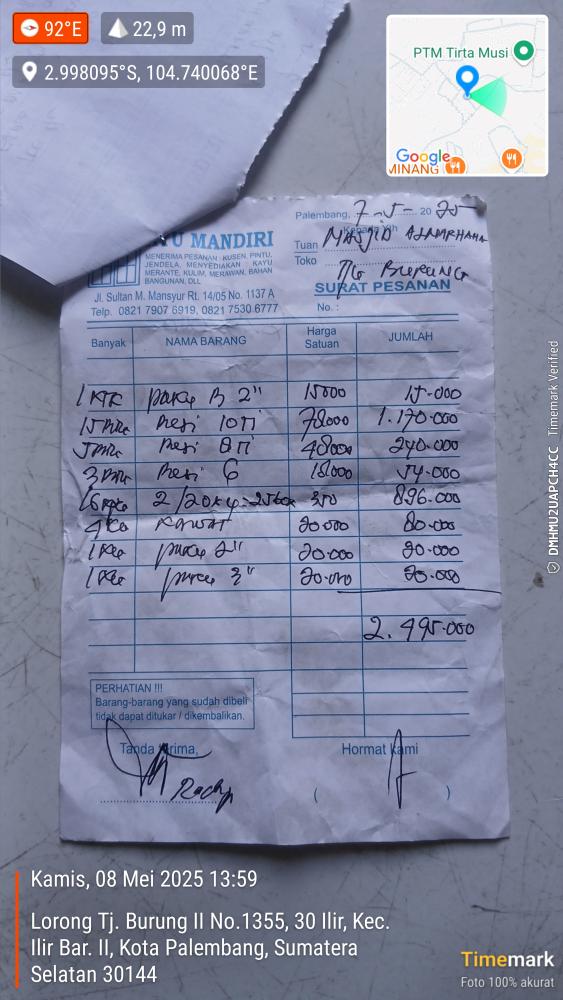 92°E 22,9 m
2.998095°S, 104.740068°E
PTM Tirta Musi
Google
MINANG
Palembang, 7-5- 2025
Kepada Yth
Tuan MASJID
Toko
YU MANDIRI
MENERIMA PESANAN : KUSEN, PINTU,
JENDELA, MENYEDIAKAN : KAYU
MERANTE, KULIM, MERAWAN, BAHAN
BANGUNAN, DLL
Jl. Sultan M. Mansyur Rt. 14/05 No. 1137 A
Telp. 0821 7907 6919, 0821 7530 6777
SURAT PESANAN
No. :
Banyak NAMA BARANG Harga Satuan JUMLAH
1 B 2" 15000 15.000
15 Besi 10 78000 1.170.000
5 Besi 8 48000 240.000
3 Besi 6 18000 54.000
16 2/20 350 896.000
4 KAWAT 20.000 80.000
1 2" 20.000 20.000
1 3" 20.000 20.000
2.495.000
PERHATIAN !!!
Barang-barang yang sudah dibeli
tidak dapat ditukar / dikembalikan.
Tanda terima, Hormat kami
( )
Kamis, 08 Mei 2025 13:59
Lorong Tj. Burung II No.1355, 30 Ilir, Kec.
Ilir Bar. II, Kota Palembang, Sumatera
Selatan 30144
Timemark
Foto 100% akurat
DMHMU2UAPCH4CC Timemark Verified